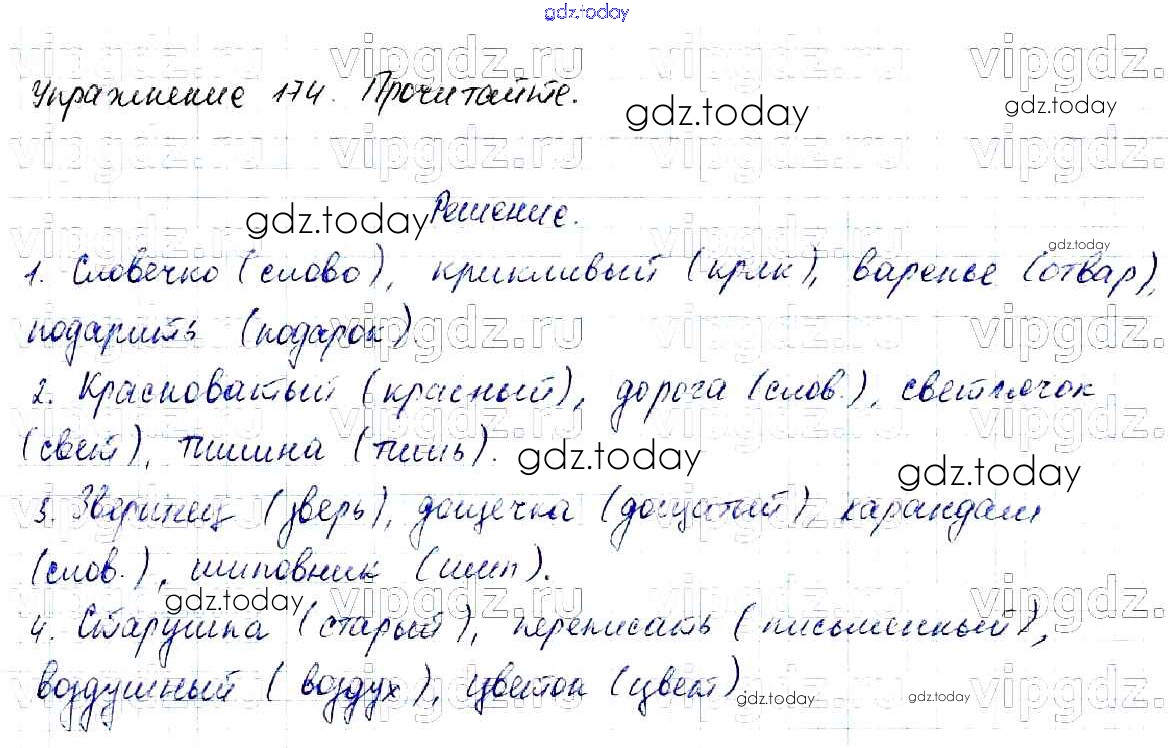 gdz.today
Упражнение 174. Прочитайте.
gdz.today
gdz.today
Решение.
gdz.today
gdz.today
1. Словечко (слово), крикливый (крик), варенье (отвар),
подарить (подарок).
2. Красноватый (красный), дорога (слов.), светлячок
(свет), тишина (тишь).
gdz.today
gdz.today
3. Зверинец (зверь), дощечка (дощатый), карандаш
(слов.), шиповник (шип).
gdz.today
4. Старушка (старый), переписать (письменный),
воздушный (воздух), цветок (цвет)
gdz.today
gdz.today
vipgdz.ru